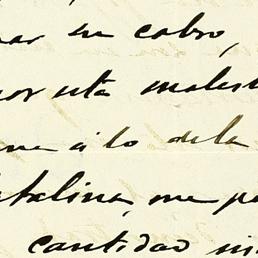 nar su cabro,
por esta molest
me á lo de la
atalina, me pa
cantidad in